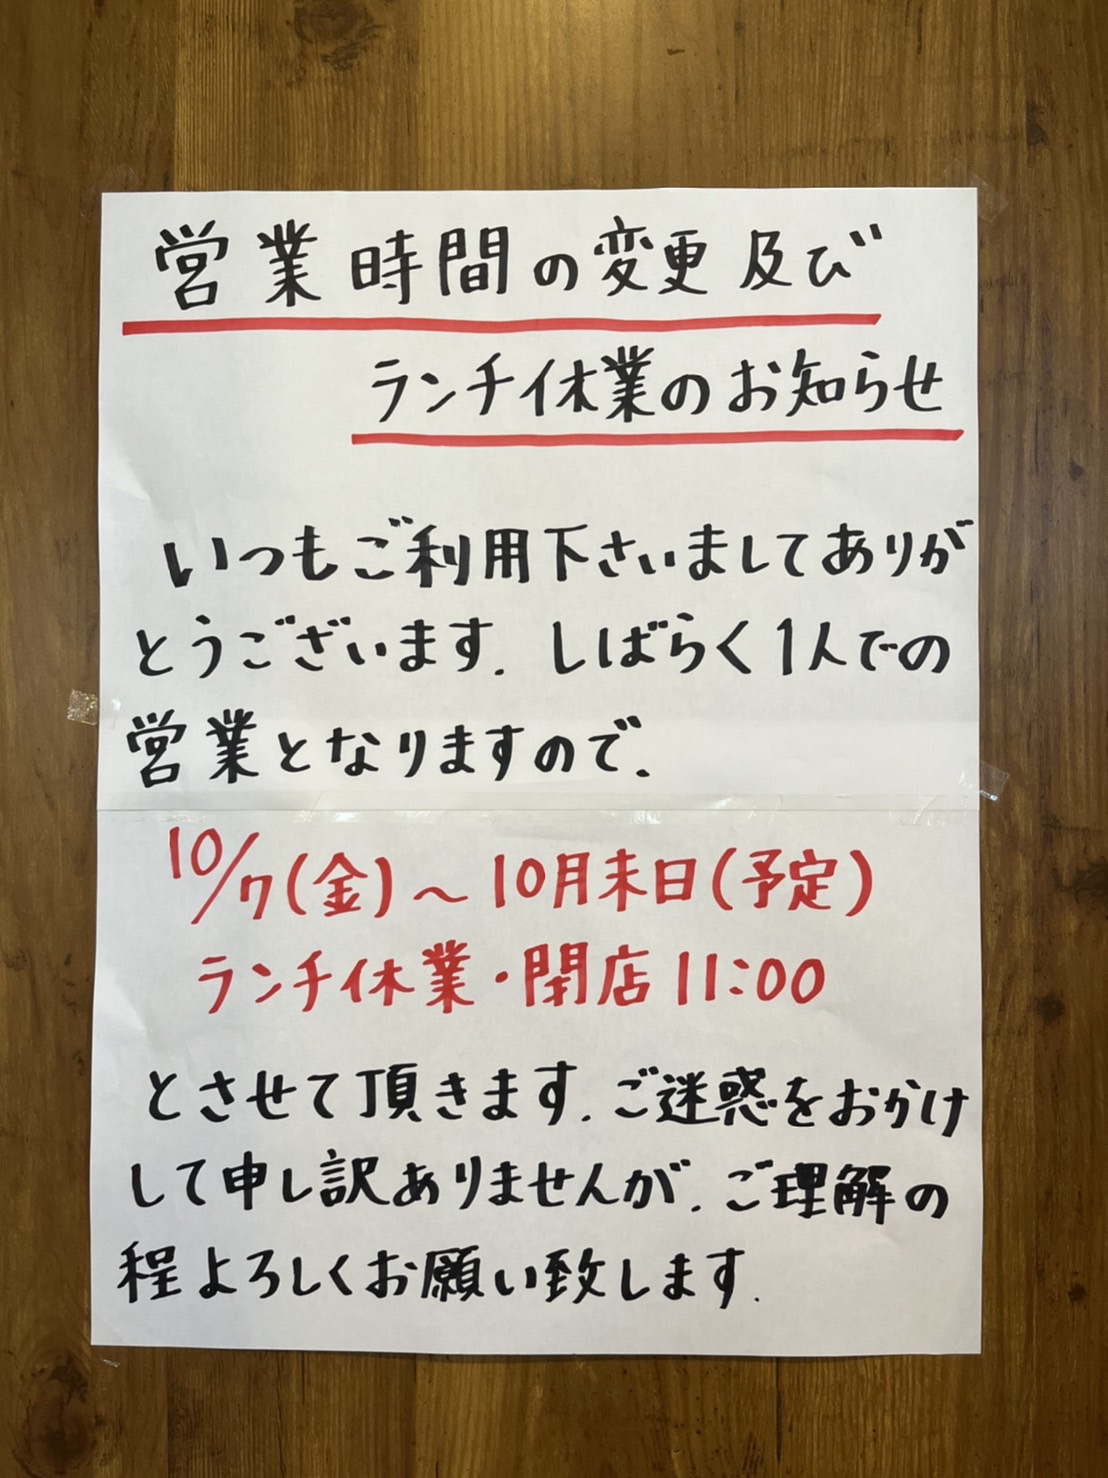 営業時間の変更及び
ランチ休業のお知らせ
いつもご利用下さいましてありが
とうございます. しばらく1人での
営業となりますので.
10/7(金)～10月末日(予定)
ランチ休業・閉店11:00
とさせて頂きます. ご迷惑をおかけ
して申し訳ありませんが. ご理解の
程よろしくお願い致します.